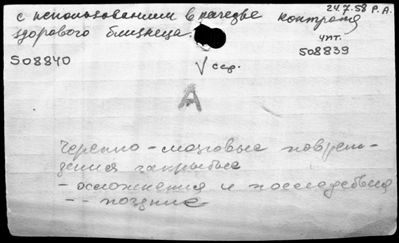 24.7.58 Р.А.
с использованием в качестве контроля
здорового близнеца.
чит.
508839
508840
√ сер.
А
Черепно-мозговые повреж-
дения закрытые
- осложнения и последствия
- - поздние